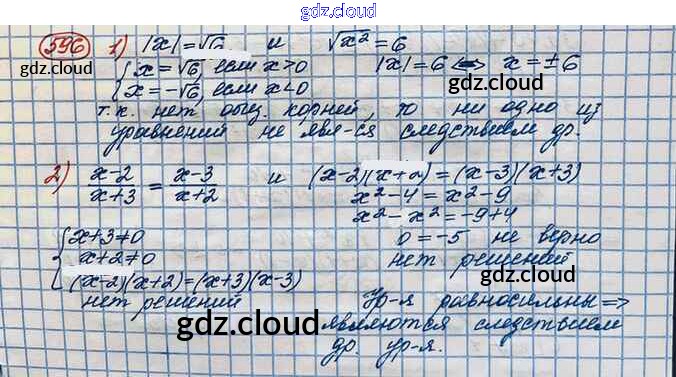 gdz.cloud
596 1) |x|=√6 и √x² = 6
gdz.cloud
{ x = √6, если x>0 |x|=6 ⟺ x = ±6
x = -√6, если x<0
gdz.cloud
т.к. нет общ. корней, то ни одно из
уравнений не явл-ся следствием др.
2) (x-2)/(x+3) = (x-3)/(x+2) и (x-2)(x+2) = (x-3)(x+3)
x²-4 = x²-9
x²-x² = -9+4
{ x+3≠0 0 = -5 не верно
x+2≠0 нет решений
gdz.cloud
(x-2)(x+2)=(x+3)(x-3)
нет решений Ур-я равносильны ⟹
gdz.cloud
являются следствием
др. ур-я.
gdz.cloud